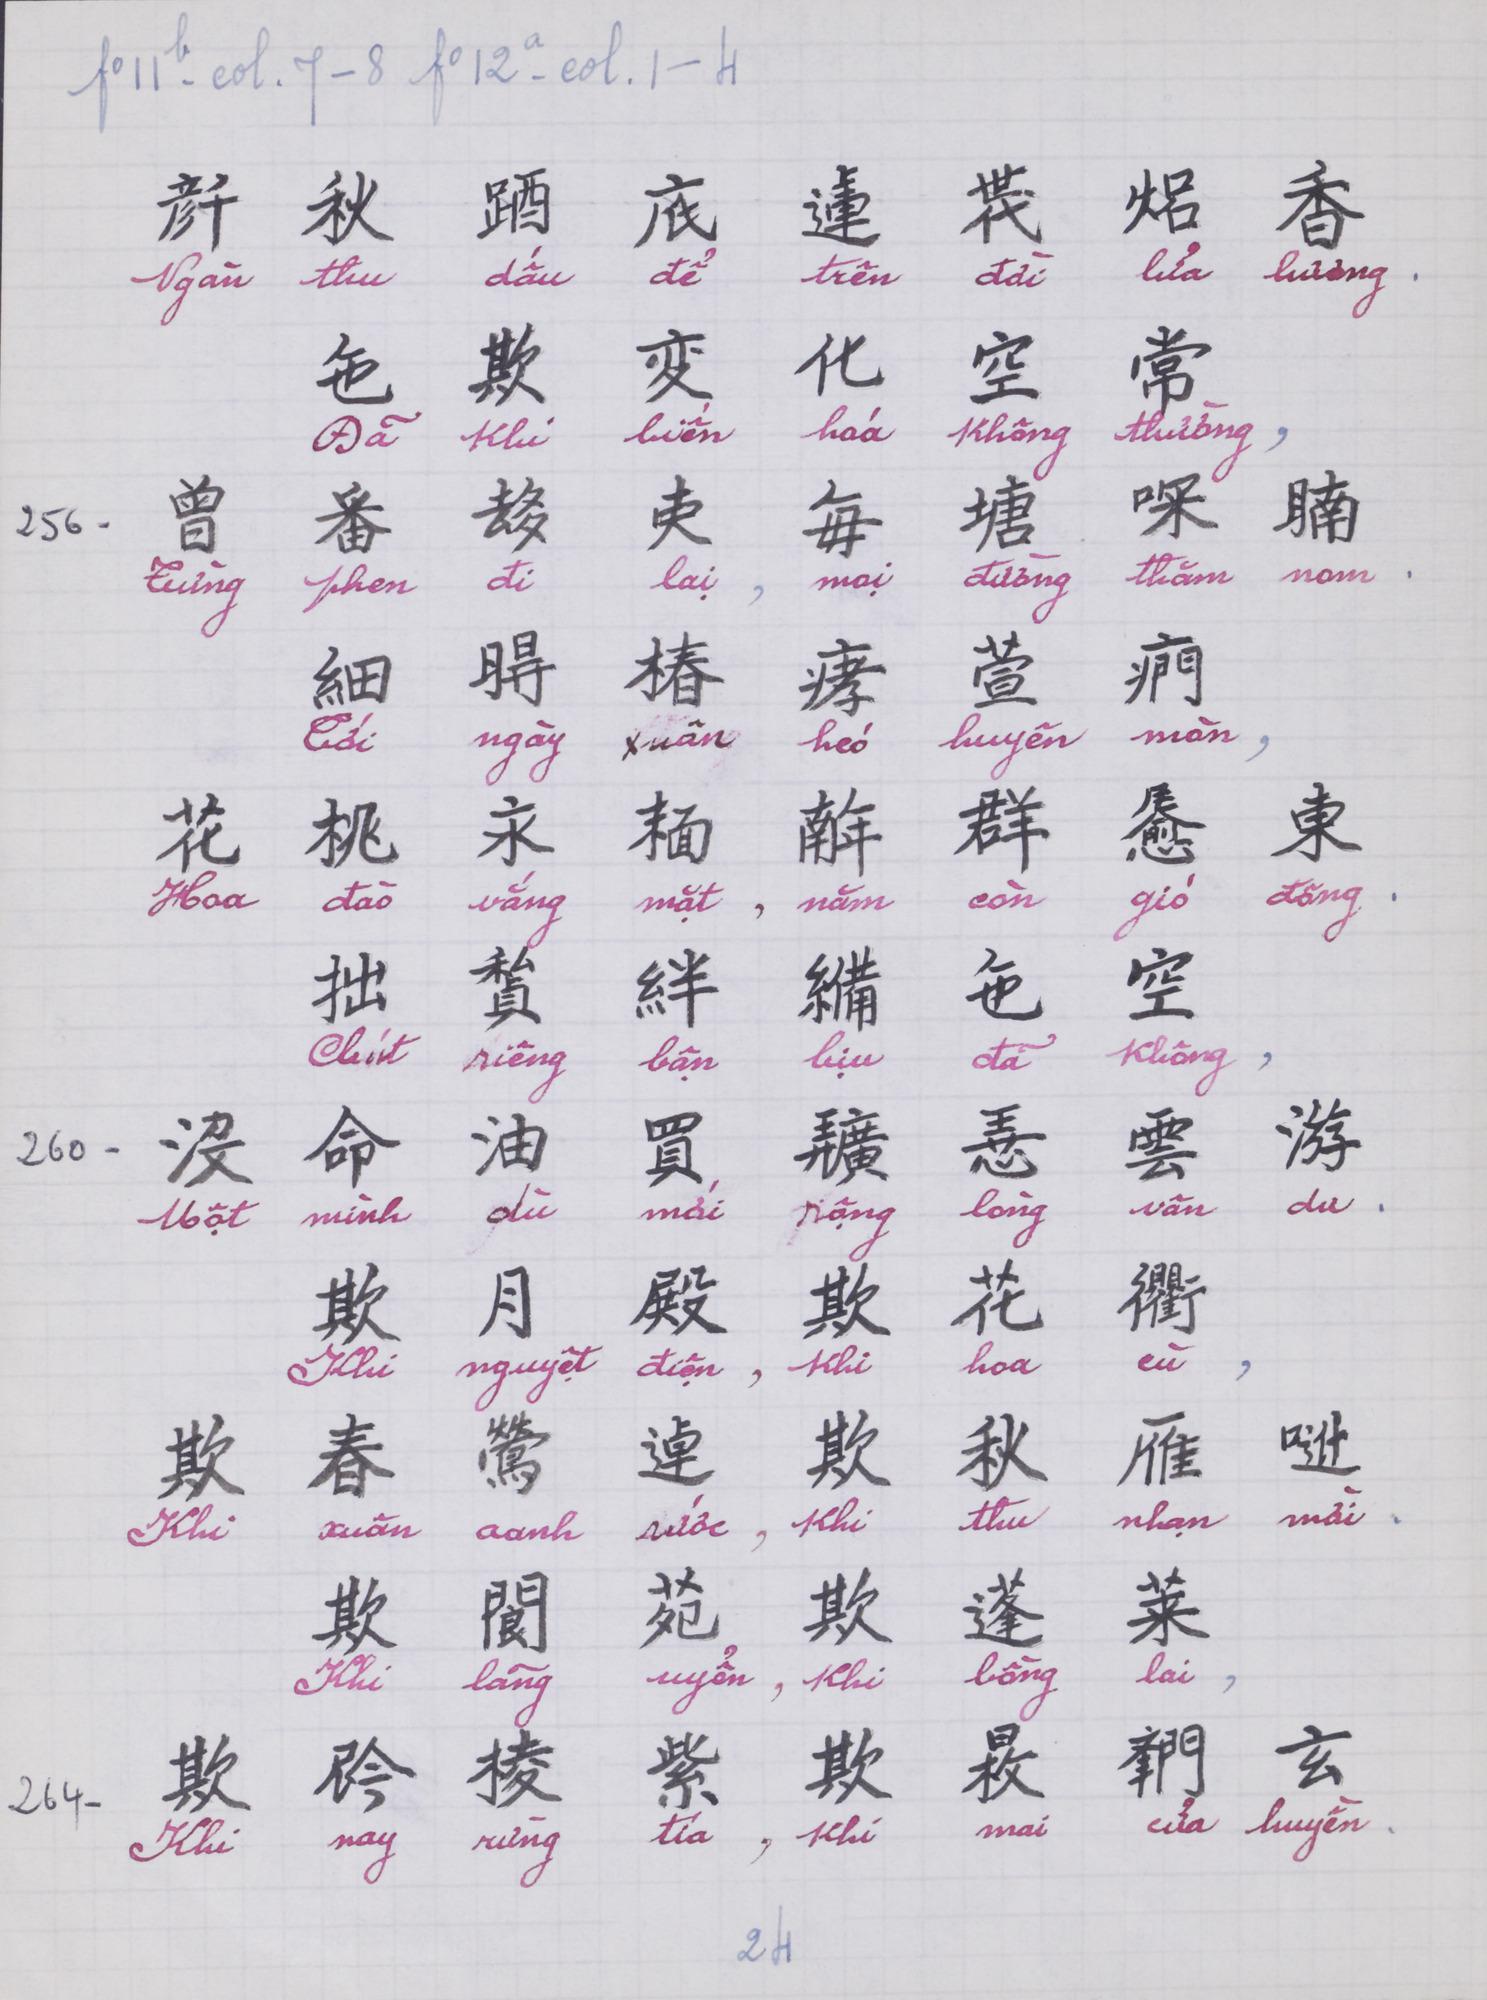 fº 11ᵇ - col. 7 - 8 fº 12ᵃ - col. 1 - 4
秋 底 蓮 香
Ngàn thu dấu để trên đài lửa hương.
𠃅 欺 変 化 空 常
Đã khi biến hoá không thường,
256 - 曾 番 𠫾 吏 每 塘 𠶀 𥊀
Từng phen đi lại, mọi đường thăm nom.
細 𣈜 椿 萱
Tới ngày xuân heó huyên mòn,
花 桃 永 𩈘 𢆥 群 𢙱 東
Hoa đào vắng mặt, năm còn gió đông.
拙 絆 𠃅 空
Chút riêng bận bịu đã không,
260 - 没 命 油 買 𢌌 𢚸 雲 游
Một mình dù mới rộng lòng vân du.
欺 月 殿 欺 花 衢
Khi nguyệt điện, khi hoa cù,
欺 春 鶯 逴 欺 秋 雁
Khi xuân oanh rước, khi thu nhạn mời.
欺 閬 苑 欺 蓬 萊
Khi lãng uyển, khi bồng lai,
264 - 欺 棱 紫 欺 玄
Khi nay rừng tía, khi mai cửa huyền.
24